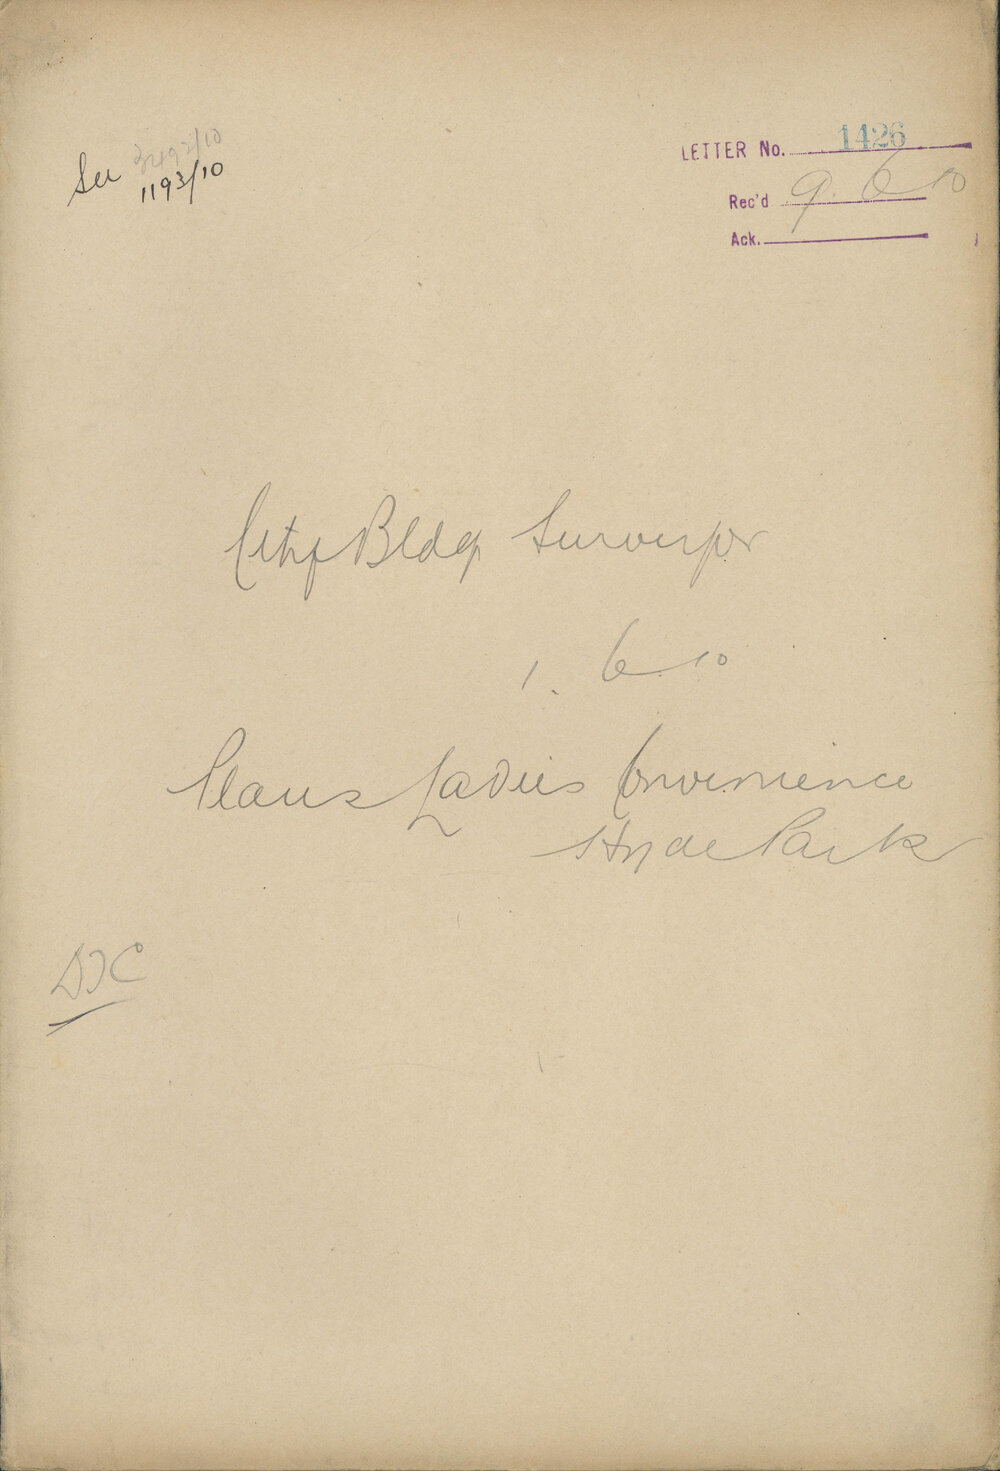 See 2492/10
1193/10
LETTER No. 1426
Rec'd 9.6.10
Ack.
City Bldg Surveyor
1.6.10
Plans Ladies Convenience
Hyde Park